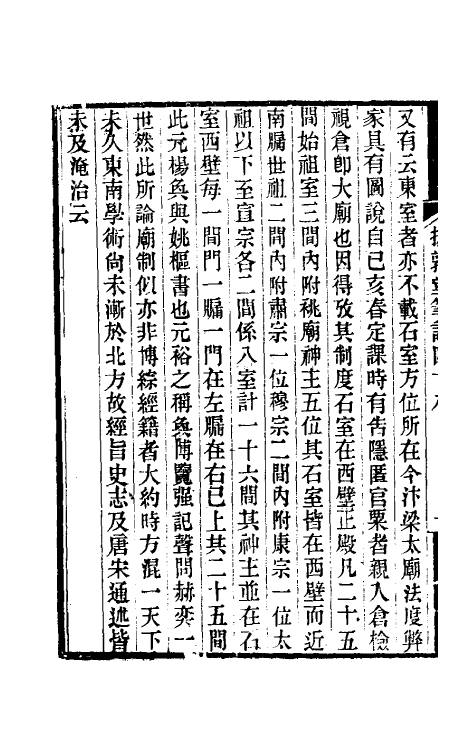 又有云東室者亦不載石室方位所在今汴梁太廟法度與
家具有圖說自已亥春定課時有告隱匿官粟者親入倉檢
視倉卽大廟也因得攷其制度石室在西壁正殿凡二十五
間始祖室三間內附祧廟神主五位其石室皆在西壁而近
南牖世祖二間內附肅宗一位穆宗二間內附康宗一位太
祖以下至宣宗各二間係八室計一十六間其神主並在石
室西壁每一間門一牖一門在左牖在右已上其二十五間
此元楊奐與姚樞書也元裕之稱奐博覽强記聲問赫奕一
世然此所論廟制似亦非博綜經籍者大約時方混一天下
未久東南學術尙未漸於北方故經旨史志及唐宋通述皆
未及淹洽云